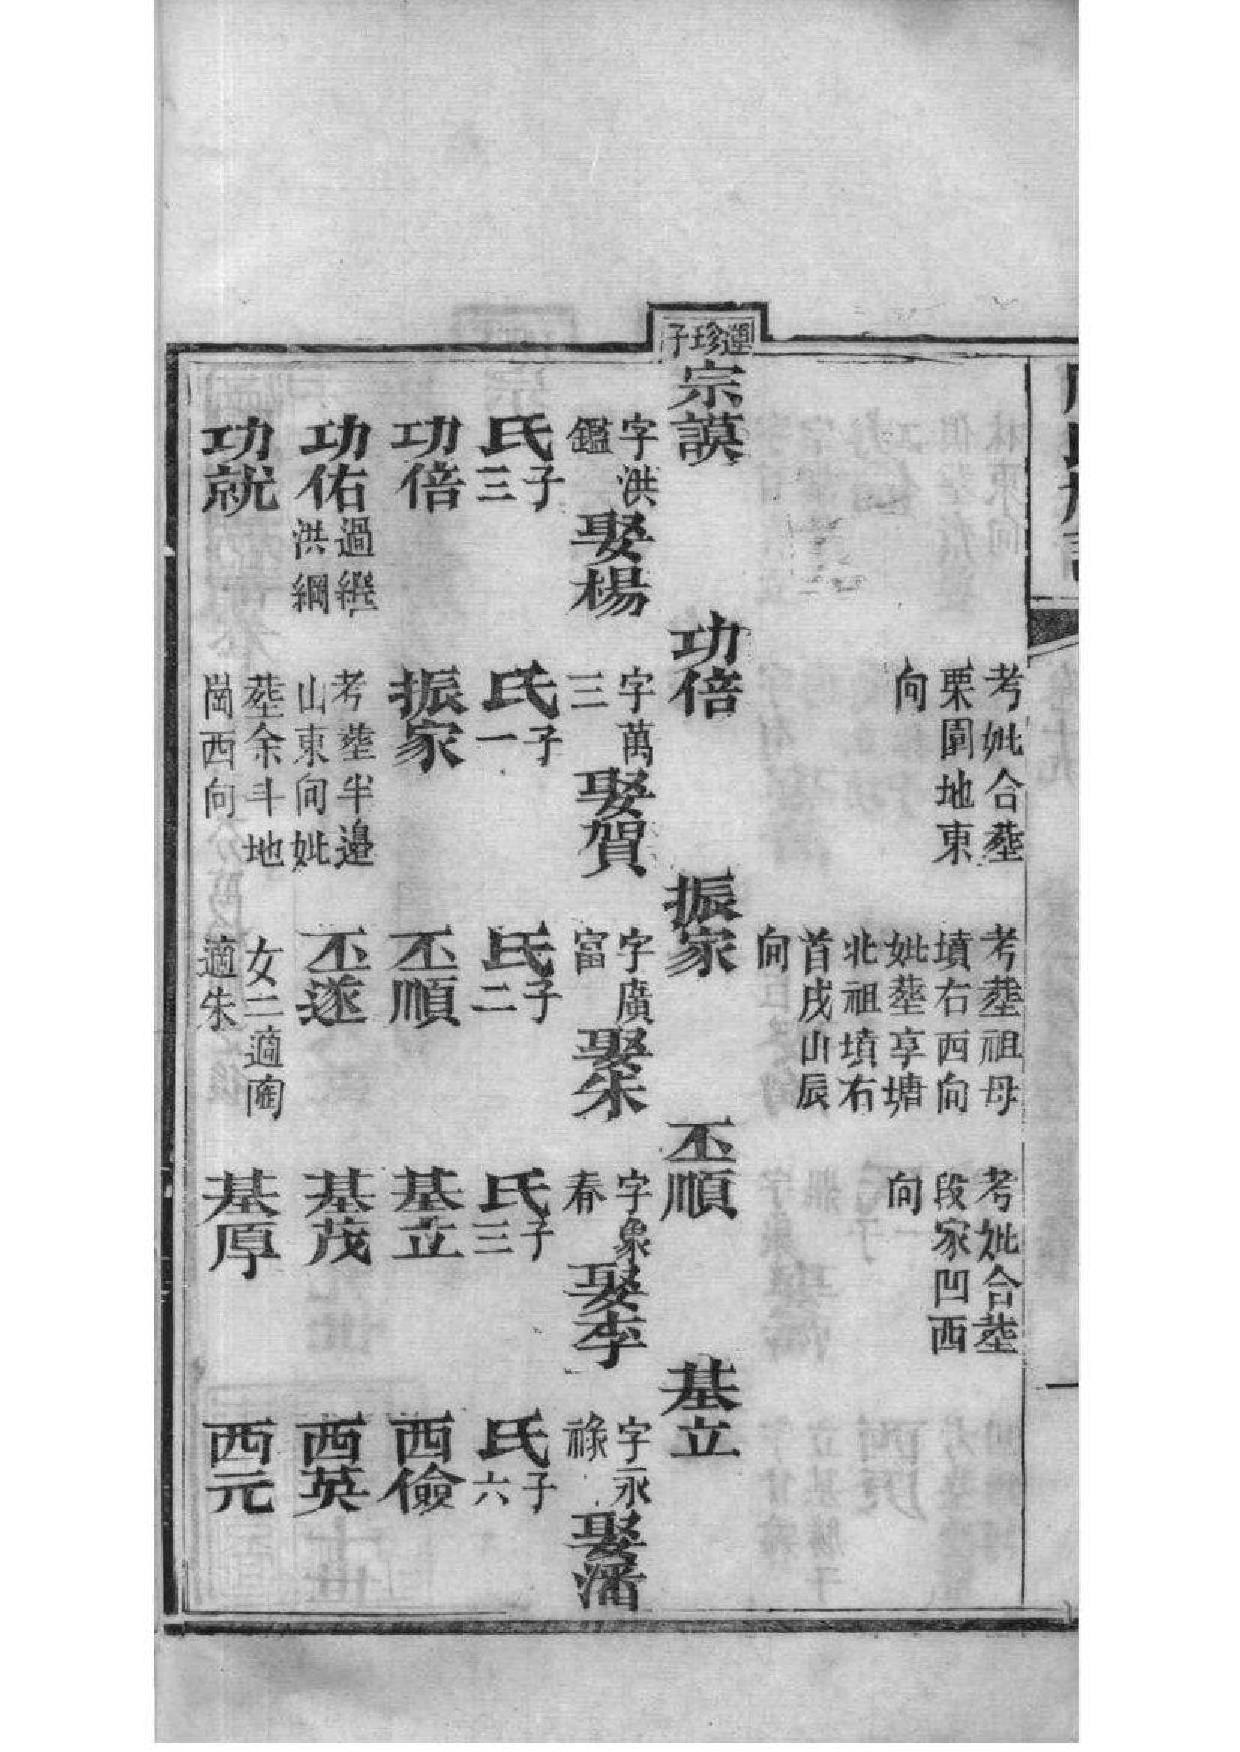 考妣合塟
栗園地東
向
考塟祖母
墳右西向
妣塟享塘
北祖墳右
首戌山辰
向
考妣合塟
段家凹西
向
珍子
宗謨
功倍
振家
丕順
基立
字洪
鑑
娶楊
氏子三
功倍
功佑過繼
洪綱
功就
字萬
三
娶賀
氏子一
振家
考塟半邉
山東向妣
塟余斗地
崗西向
字廣
富
娶朱
氏子二
丕順
丕遂
女二適陶
適朱
字象
春
娶李
氏子三
基立
基茂
基厚
字永
祿
娶潘
氏子六
西儉
西英
西元